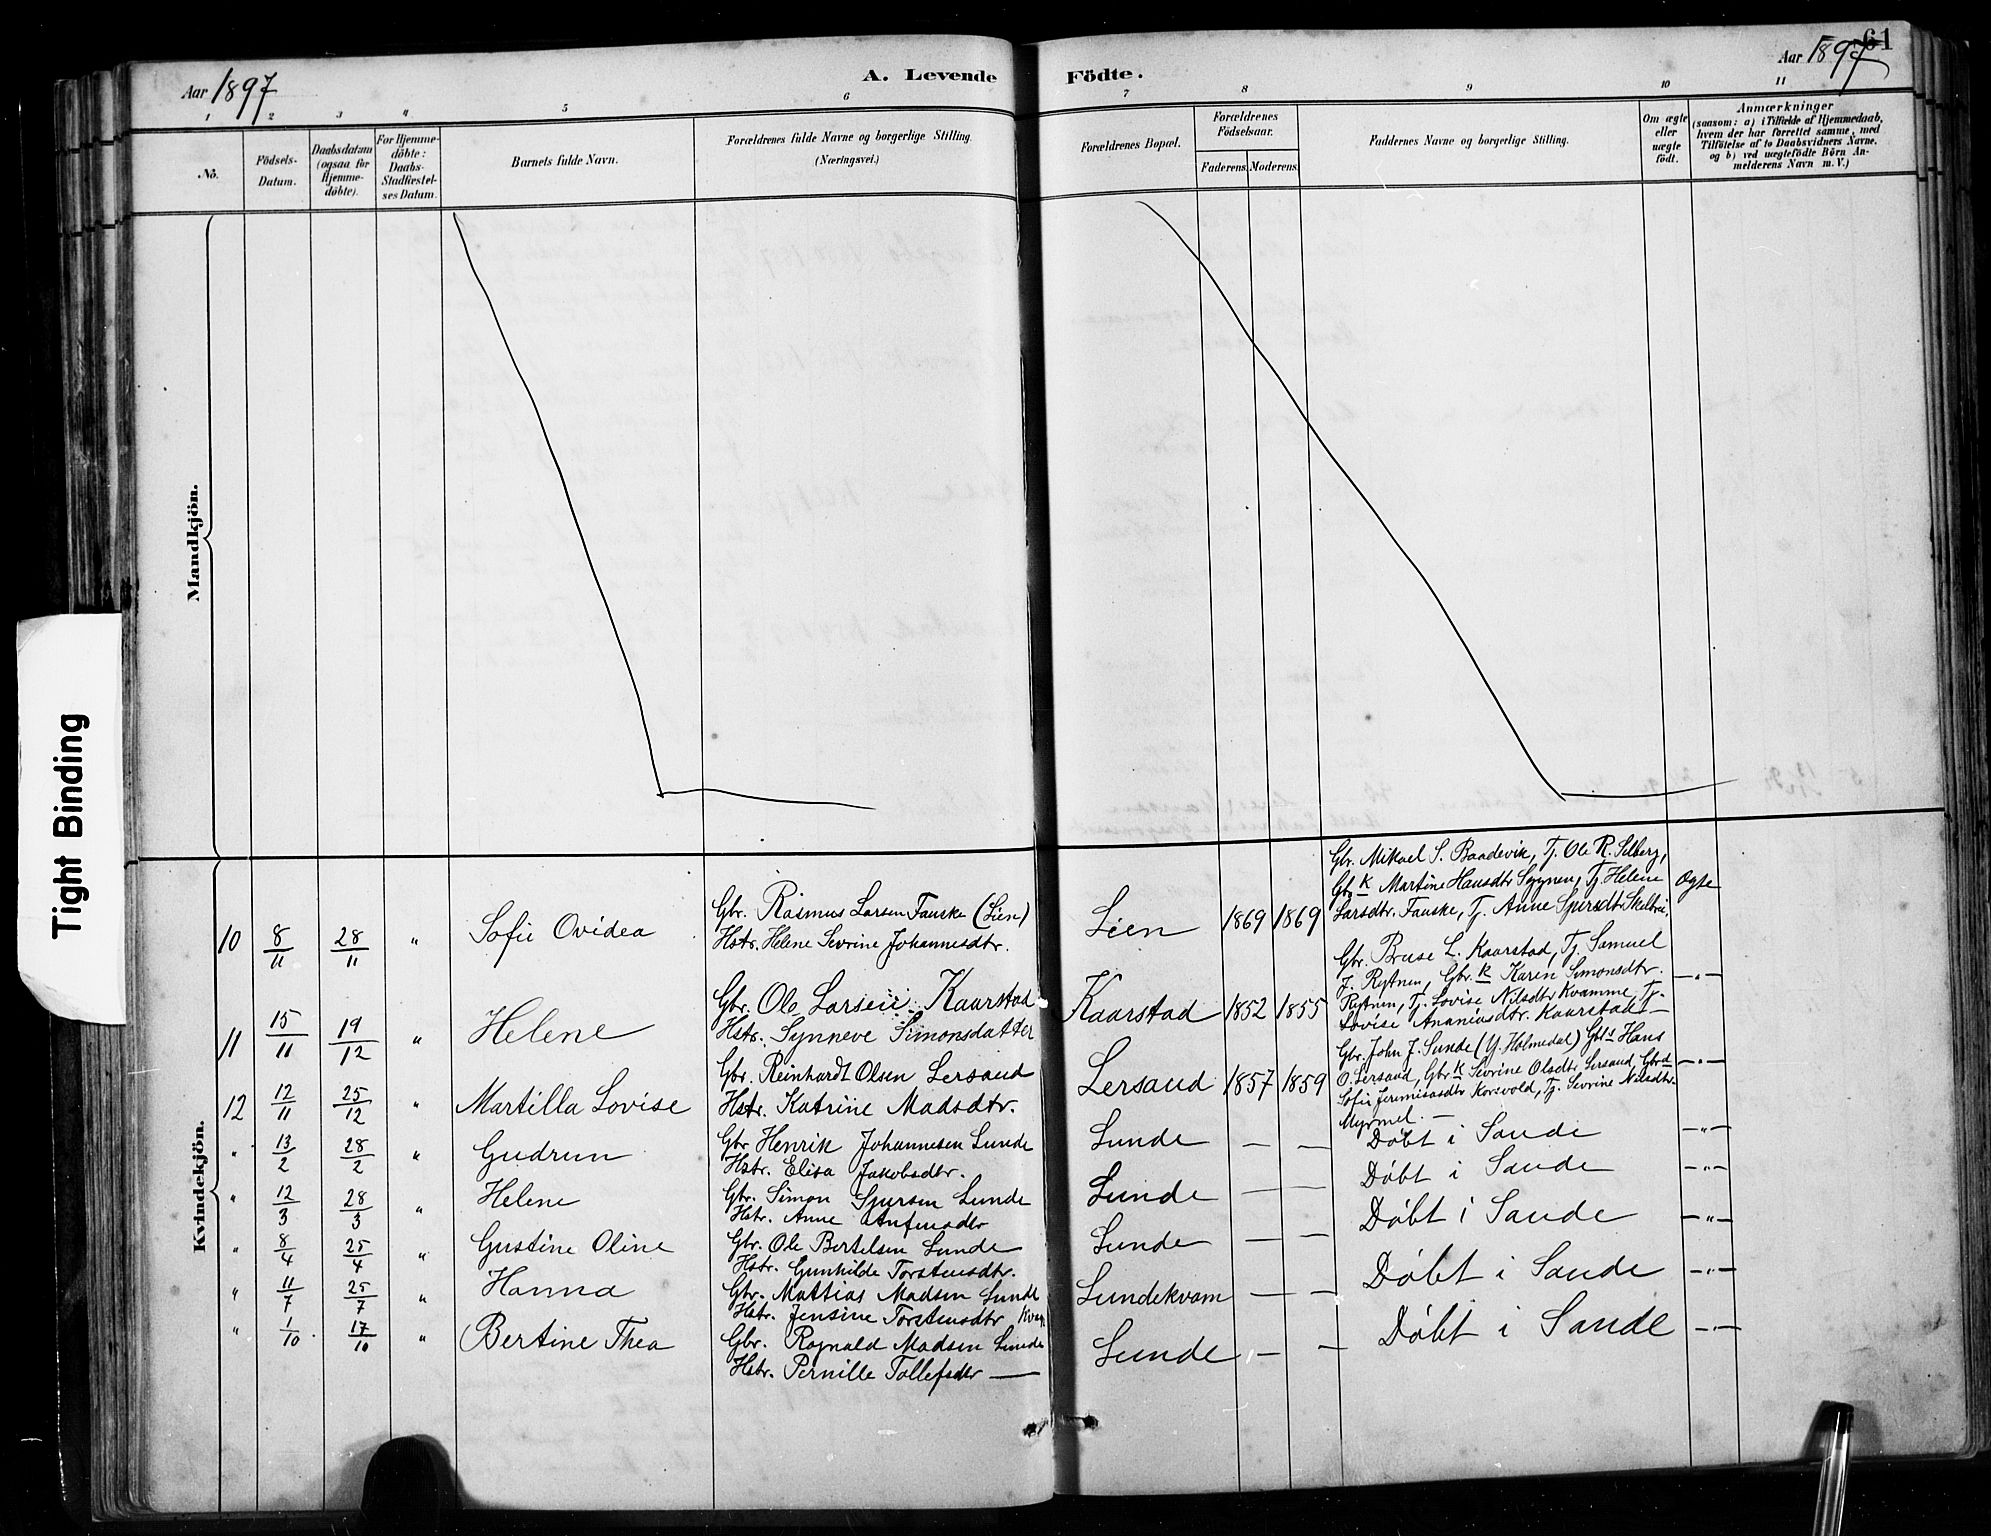 61
Aar 1897
A. Levende
Födte.
Aar 1897
1 2 3 4 5 6 7 8 9 10 11
No.
Födsels-
Datum.
Daabsdatum
(ogsaa for
Hjemme-
döbte).
For Hjemme-
döbte:
Daabs-
Stadfestel-
ses Datum.
Barnets fulde Navn.
Forældrenes fulde Navne og borgerlige Stilling.
(Næringsvei.)
Forældrenes Bopæl.
Forældrenes
Födselsaar.
Faderens.
Moderens.
Faddernes Navne og borgerlige Stilling.
Om ægte
eller
uægte
födt.
Anmærkninger
(saasom: a) i Tilfælde af Hjemmedaab,
hvem der har forrettet samme, med
Tilföielse af to Daabsvidners Navne.
og b) ved uægtefödte Börn An-
melderens Navn m. V.)
Mandkjön.
Kvindekjön.
Tight Binding
10 8/11 28/11 " Sofie Ovidea
Gbr. Rasmus Larsen Fauske (Lien)
Hstr. Helene Sevrine Johannesdtr.
Lien 1869 1869
Gbr. Mikael S. Baadevik, Tj. Ole R. Selberg,
Gbr k Martine Hansdtr , Tj. Helene
Larsdtr. Fauske, Tj. Anne
Ægte
11 15/11 19/12 " Helene
Gbr. Ole Larsen Kaarstad
Hstr. Synneve Simonsdatter
Kaarstad 1852 1855
Gbr. Bruse L. Kaarstad, Tj. Samuel
J. Rytnen, Gbr. k Karen Simonsdtr.
Rytnen, Tj. Lovise Nilsdtr Kvamme, Tj.
Lovise Ananiasdtr. Kaarstad –
—"—
12 12/11 25/12 " Martilla Lovise
Gbr. Reinhardt Olsen Lersand
Hstr. Katrine Madsdtr.
Lersand 1857 1859
Gbr. John J. Sunde (Y. Holmedal) Gbs Hans
O. Lersand, Gbr k Sevrine Olsdtr Lersand, Gbrd
Sofie Jeremiasdtr Korsvold, Tj. Sevrine Nilsdtr.
Myrmel. —
—"—
" 13/2 28/2 " Gudrun
Gbr Henrik Johannesen Sunde
Hstr. Elisa Jakobsdtr.
Sunde — — Döbt i Sande —"—
" 12/3 28/3 " Helene
Gbr. Simon Sjursen Sunde
Hstr. Anne Anfinsdtr
Sunde — — Döbt i Sande —"—
" 8/4 25/4 " Gustine Oline
Gbr. Ole Bertelsen Sunde
Hstr. Gunhilde Torstensdtr.
Sunde — — Döbt i Sande —"—
" 11/7 25/7 " Hanna
Gbr. Mattias Madsen Sunde
Hstr. Jensine Torstensdtr Kvam
Sundekvam — — Döbt i Sande —"—
" 1/10 17/10 " Bertine Thea
Gbr. Ragnald Madsen Sunde
Hstr. Pernille Tollefsdtr —
Sunde — — Döbt i Sande —"—